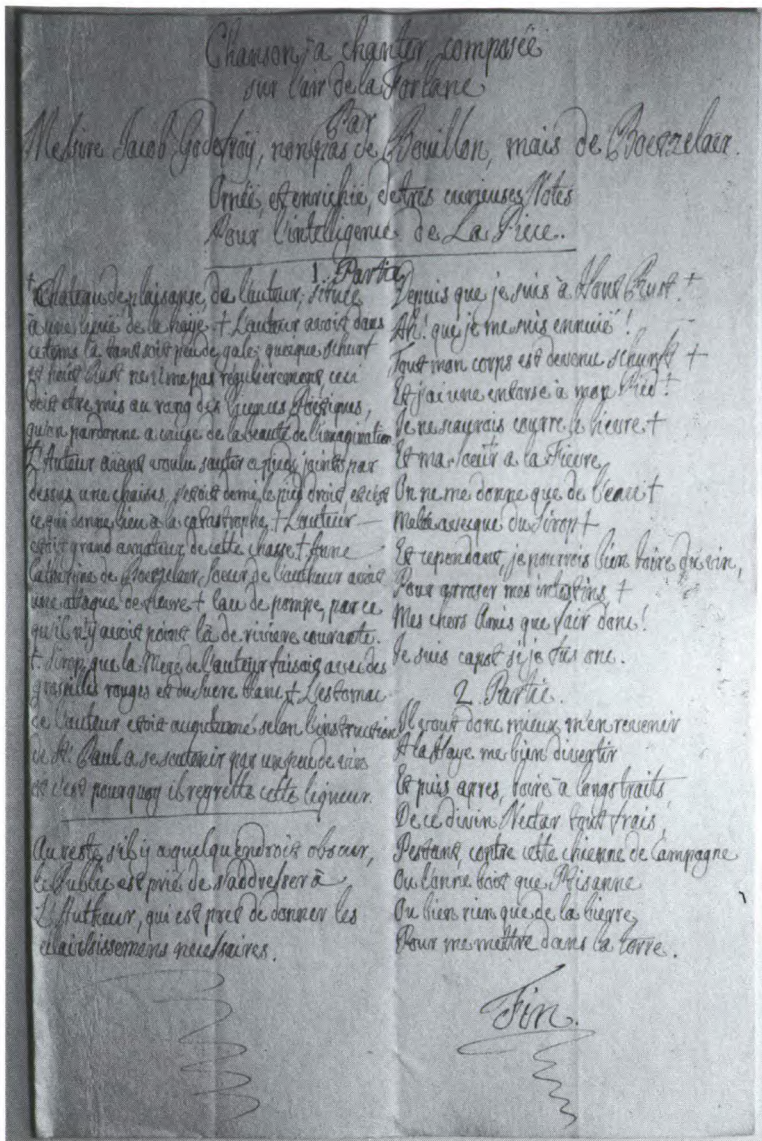 Chanson, a chanter, composée
sur l'air de la Forlane
Par
Messire Jacob Godefroy, non pas de Bouillon, mais de Boetzelaer.
Ornée, et enrichie, de tres curieuses Notes
Pour l'intelligence de La Piece.
1. Partie
† Chateau de plaisanse, de l'auteur, située
à une lieue de la haije. † L'auteur avoit dans
ce tems là tant soit peu de gale; quoique schurft
et hout Rust ne rime pas régulièrement, ceci
doit etre mis au rang des licences Poëtiques,
qu'on pardonne a cause de la beauté de l'imagination
L'Auteur aiant voulu sauter a pieds joints par
dessus une chaise, s'etoit demi le pied droit, et c'est
ce qui donne lieu a la catastrophe, † L'auteur
etoit grand amateur de cette chasse † Anne
Catherine de Boetzelaer, soeur de l'autheur avoit
une attaque de fievre † l'au de pompe, par ce
qu'il n'y avoit point là de riviere courante.
† Sirop que la Mere de l'auteur faisoit avec des
groseilles rouges et du sucre blanc † L'estomac
de l'auteur etoit acoutumé selon l'instruction
de St. Paul a se soutenir par un peu de vin
et c'est pourquoy il regrette cette liqueur.
Au reste, s'il y a quelqu'endroit obscur,
le Public est prié de s'addresser à
L'Autheur, qui est pret de donner les
eclaircissemens necessaires.
Depuis que je suis à Hout Rust. †
Ah! que je me suis ennuié!
Tout mon corps est devenu schurft †
Et j'ai une entorse à mon Pied †
Je ne sayrois courre le lievre †
Et ma Soeur a la Fievre
On ne me donne que de l'eau †
Melée avecque du Sirop †
Et cependant, je pourrois bien boire du vin,
Pour arroser mes intestins †
Mes chers Amis que fair donc!
Je suis capot si je dis
2. Partie.
Il vout donc mieux m'en revenir
A la Haye me bien divertir
Et puis apres, boire à longs traits
De ce divin Nectar tout frais,
Pestant, contre cette chienne de Campagne
Ou l'on ne boit que Ptisanne
Ou bien rien que de la bierre,
Pour me mettre dans la terre.
Fin.